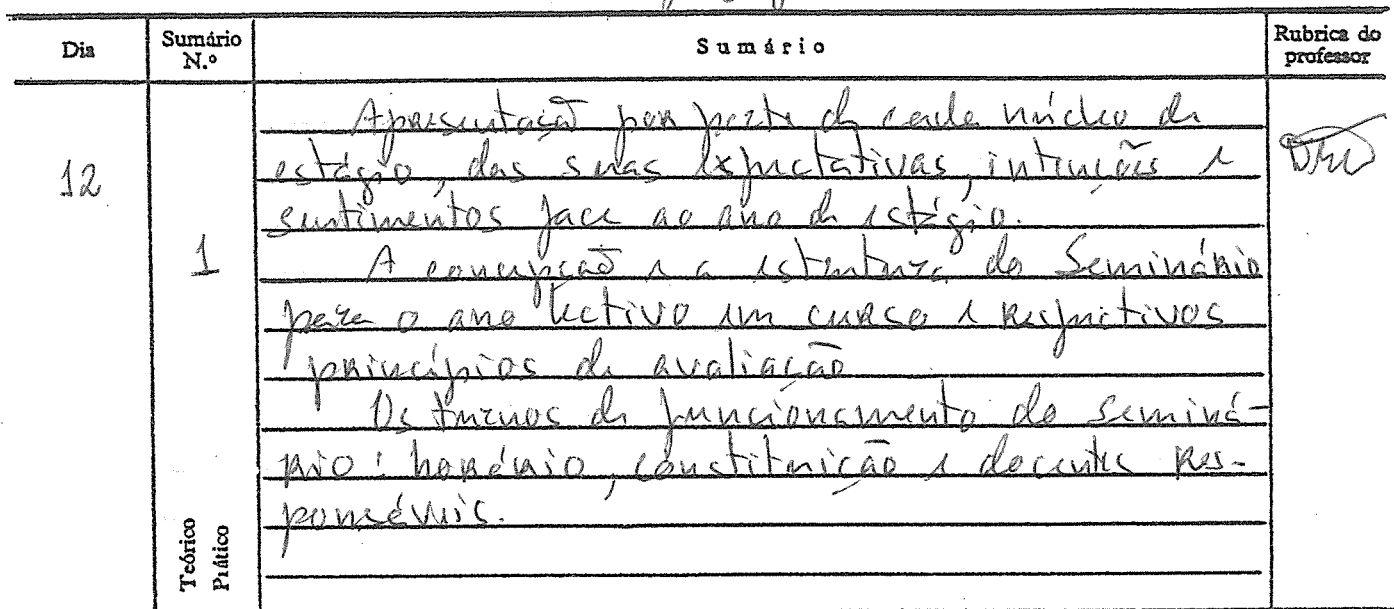 Dia Sumário N.º Sumário Rubrica do professor
12
1
Teórico Prático
Apresentação por parte de cada núcleo de
estágio, das suas expectativas, intenções e
sentimentos face ao ano de estágio.
A concepção e a estrutura do Seminário
para o ano lectivo em curso e respectivos
princípios de avaliação
Os turnos de funcionamento do Seminá-
rio: horário, constituição e docentes res-
ponsáveis.